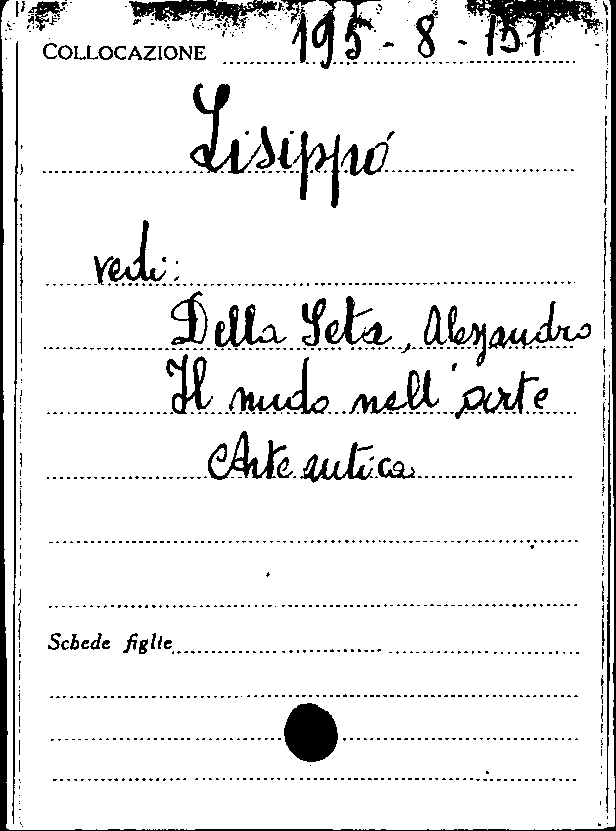 COLLOCAZIONE 195 - 8 - 151
Lisippo
vedi:
Della Seta, Alessandro
Il nudo nell'arte
Arte antica
Schede figlie